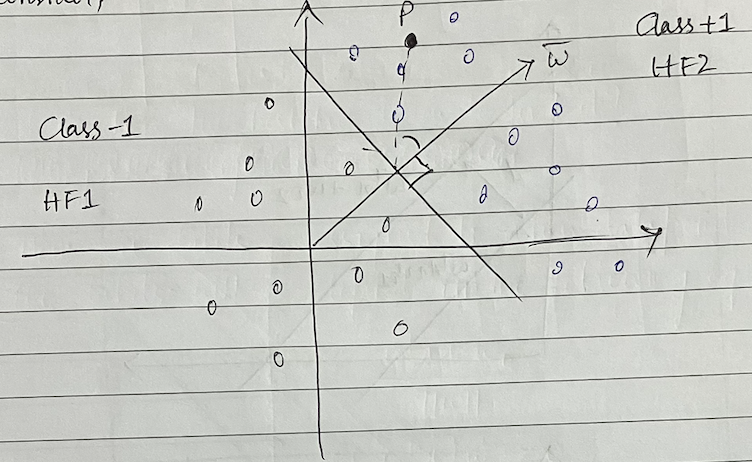 P
Class+1
w
HF2
Class-1
HF1